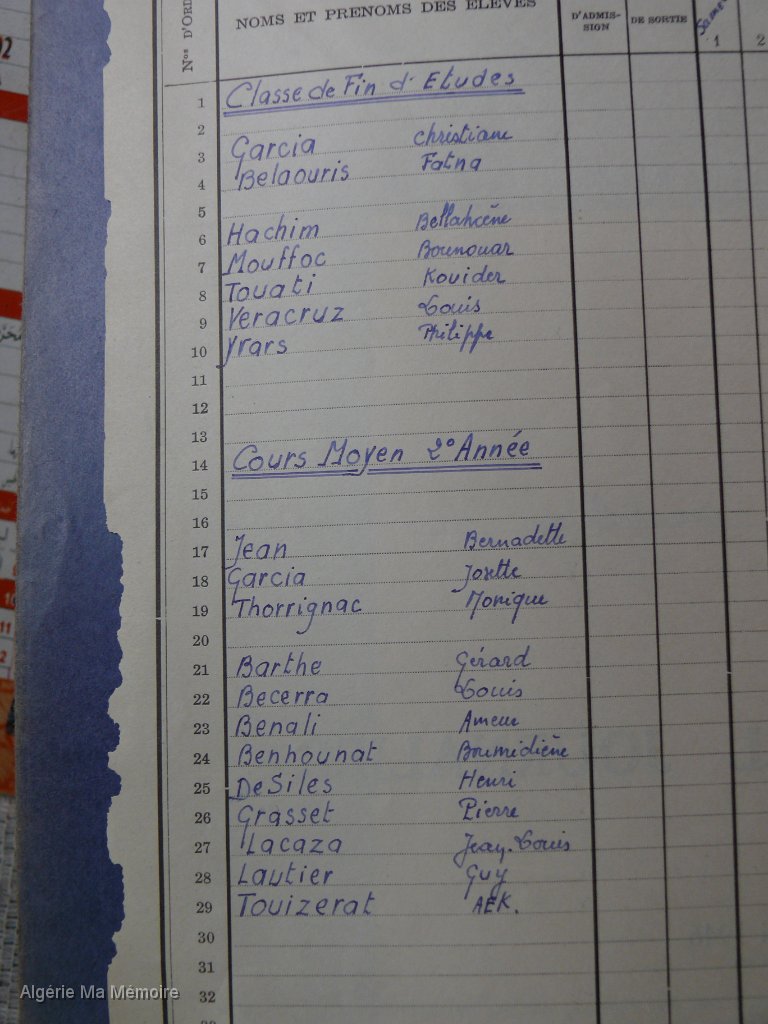 Nos D'ORD
NOMS ET PRENOMS DES ELEVES
D'ADMIS-
SION
DE SORTIE
1 2
1 Classe de Fin d'Etudes
2
3 Garcia Christiane
4 Belaouris Fatna
5
6 Hachim Bellahcène
7 Mouffoc Bounouar
8 Touati Kouider
9 Veracruz Louis
10 Yrars Philippe
11
12
13
14 Cours Moyen 2° Année
15
16
17 Jean Bernadette
18 Garcia Josette
19 Thorrignac Monique
20
21 Barthe Gérard
22 Becerra Louis
23 Benali Ameur
24 Benhounat Boumidiène
25 De Siles Henri
26 Grasset Pierre
27 Lacaza Jean-Louis
28 Lautier Guy
29 Touizerat AEK.
30
31
32
Algérie Ma Mémoire